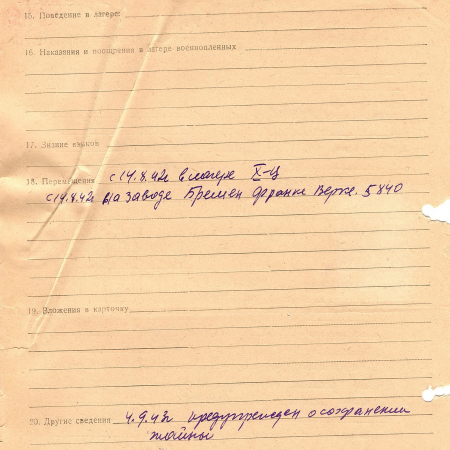 15. Поведение в лагере:
16. Наказания и поощрения в лагере военнопленных
17. Знание языков
18. Перемещения с 14.8.42г в лагере X-Ц
с 14.8.42г на заводе Бремен Франке Верке. 5840
19. Вложения в карточку
20. Другие сведения 4.9.43г предупрежден о сохранении
тайны